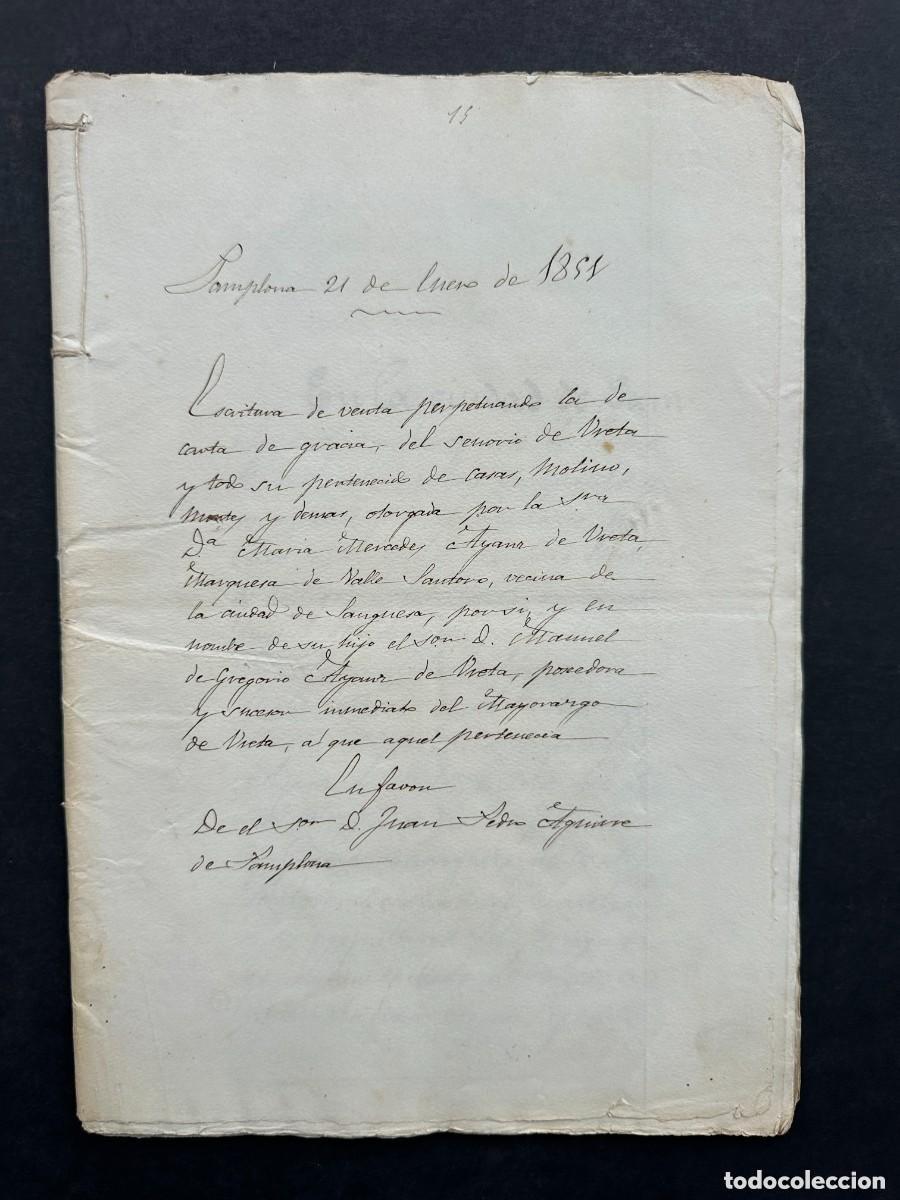 15
Pamplona 21 de Enero de 1851
Escritura de venta perpetuando la de
carta de gracia, del señorio de Vreta
y todo su pertenecido de casas, Molino,
Montes y demas, otorgada por la Sra
Da Maria Mercedes Ayanz de Vreta,
Marquesa de Valle Santoro, vecina de
la ciudad de Sanguesa, por si, y en
nombe de su hijo el sor D. Manuel
de Gregorio Ayanz de Vreta, poseedora
y sucesor inmediato del Mayorazgo
de Vreta, a que aquel pertenecia
En favor
De el sor D. Juan Pedro Aguirre
de Pamplona
todocoleccion